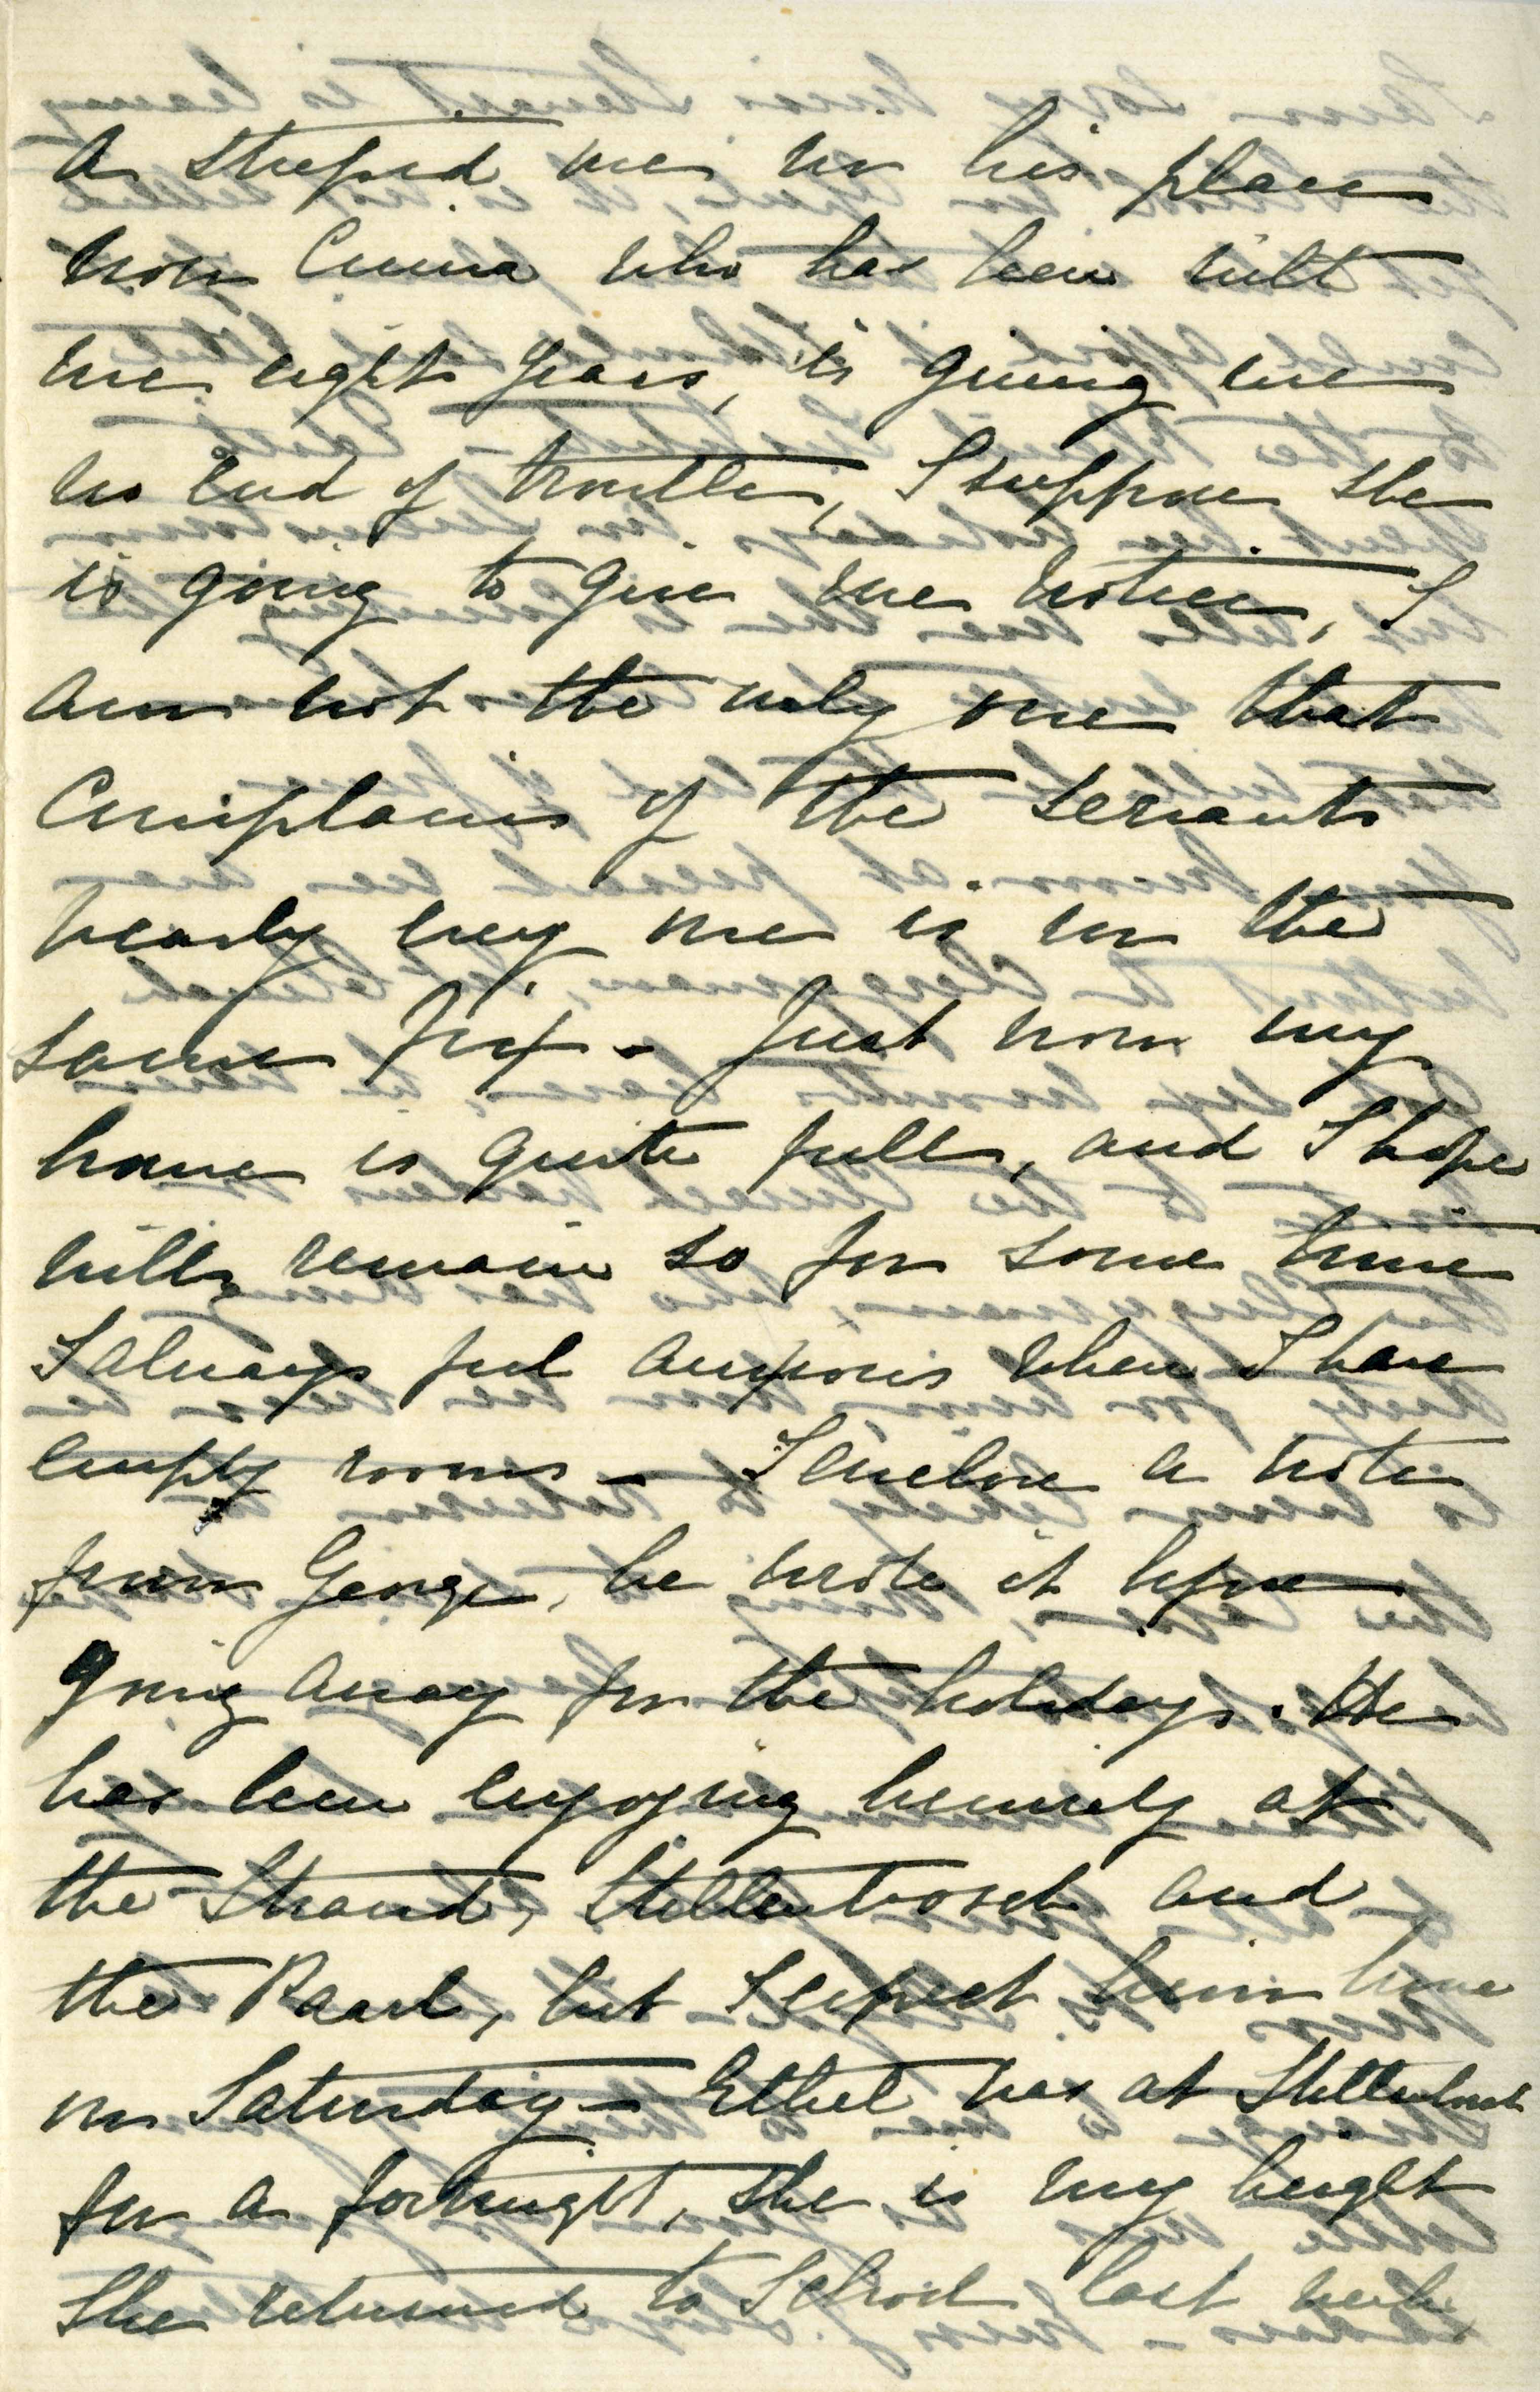 A stupid one in his place
now Emma who has been with
me eight years, is giving me
no end of trouble, I suppose she
is going to give me notice, I
am not the only one that
Complains of the servants
nearly every one is in the
same fix - Just now my
house is quite full, and I hope
will remain so for some time
I always feel anxious when I have
empty rooms - I enclose a note
from George, he wrote it before
going away for the holidays. He
has been enjoying himself at
the Strand, Stellenbosch and
the Paarl, but I expect him home
on Saturday - Ethel was at Stellenbosch
for a fortnight, she is my height
She returned to School last week,